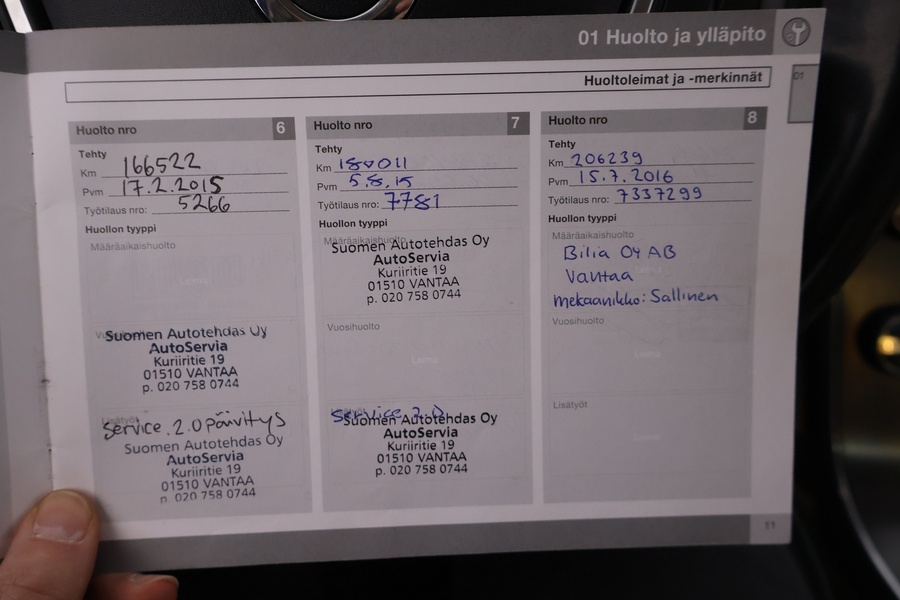 01 Huolto ja ylläpito
01
Huoltoleimat ja -merkinnät
Huolto nro 6
Tehty
Km 166522
Pvm 17.2.2015
Työtilaus nro: 5266
Huollon tyyppi
Määräaikaishuolto
Leima
Suomen Autotehdas Oy
AutoServia
Kuriiritie 19
01510 VANTAA
p. 020 758 0744
Lisätyöt
Service 2.0 päivitys
Suomen Autotehdas Oy
AutoServia
Kuriiritie 19
01510 VANTAA
p. 020 758 0744
Huolto nro 7
Tehty
Km
Pvm 5.8.15
Työtilaus nro: 7781
Huollon tyyppi
Määräaikaishuolto
Suomen Autotehdas Oy
AutoServia
Kuriiritie 19
01510 VANTAA
p. 020 758 0744
Vuosihuolto
Leima
Service 2.0
Suomen Autotehdas Oy
AutoServia
Kuriiritie 19
01510 VANTAA
p. 020 758 0744
Huolto nro 8
Tehty
Km 206239
Pvm 15.7.2016
Työtilaus nro: 7337299
Huollon tyyppi
Määräaikaishuolto
Bilia OY AB
Vantaa
mekaanikko: Sallinen
Vuosihuolto
Leima
Lisätyöt
Leima
11